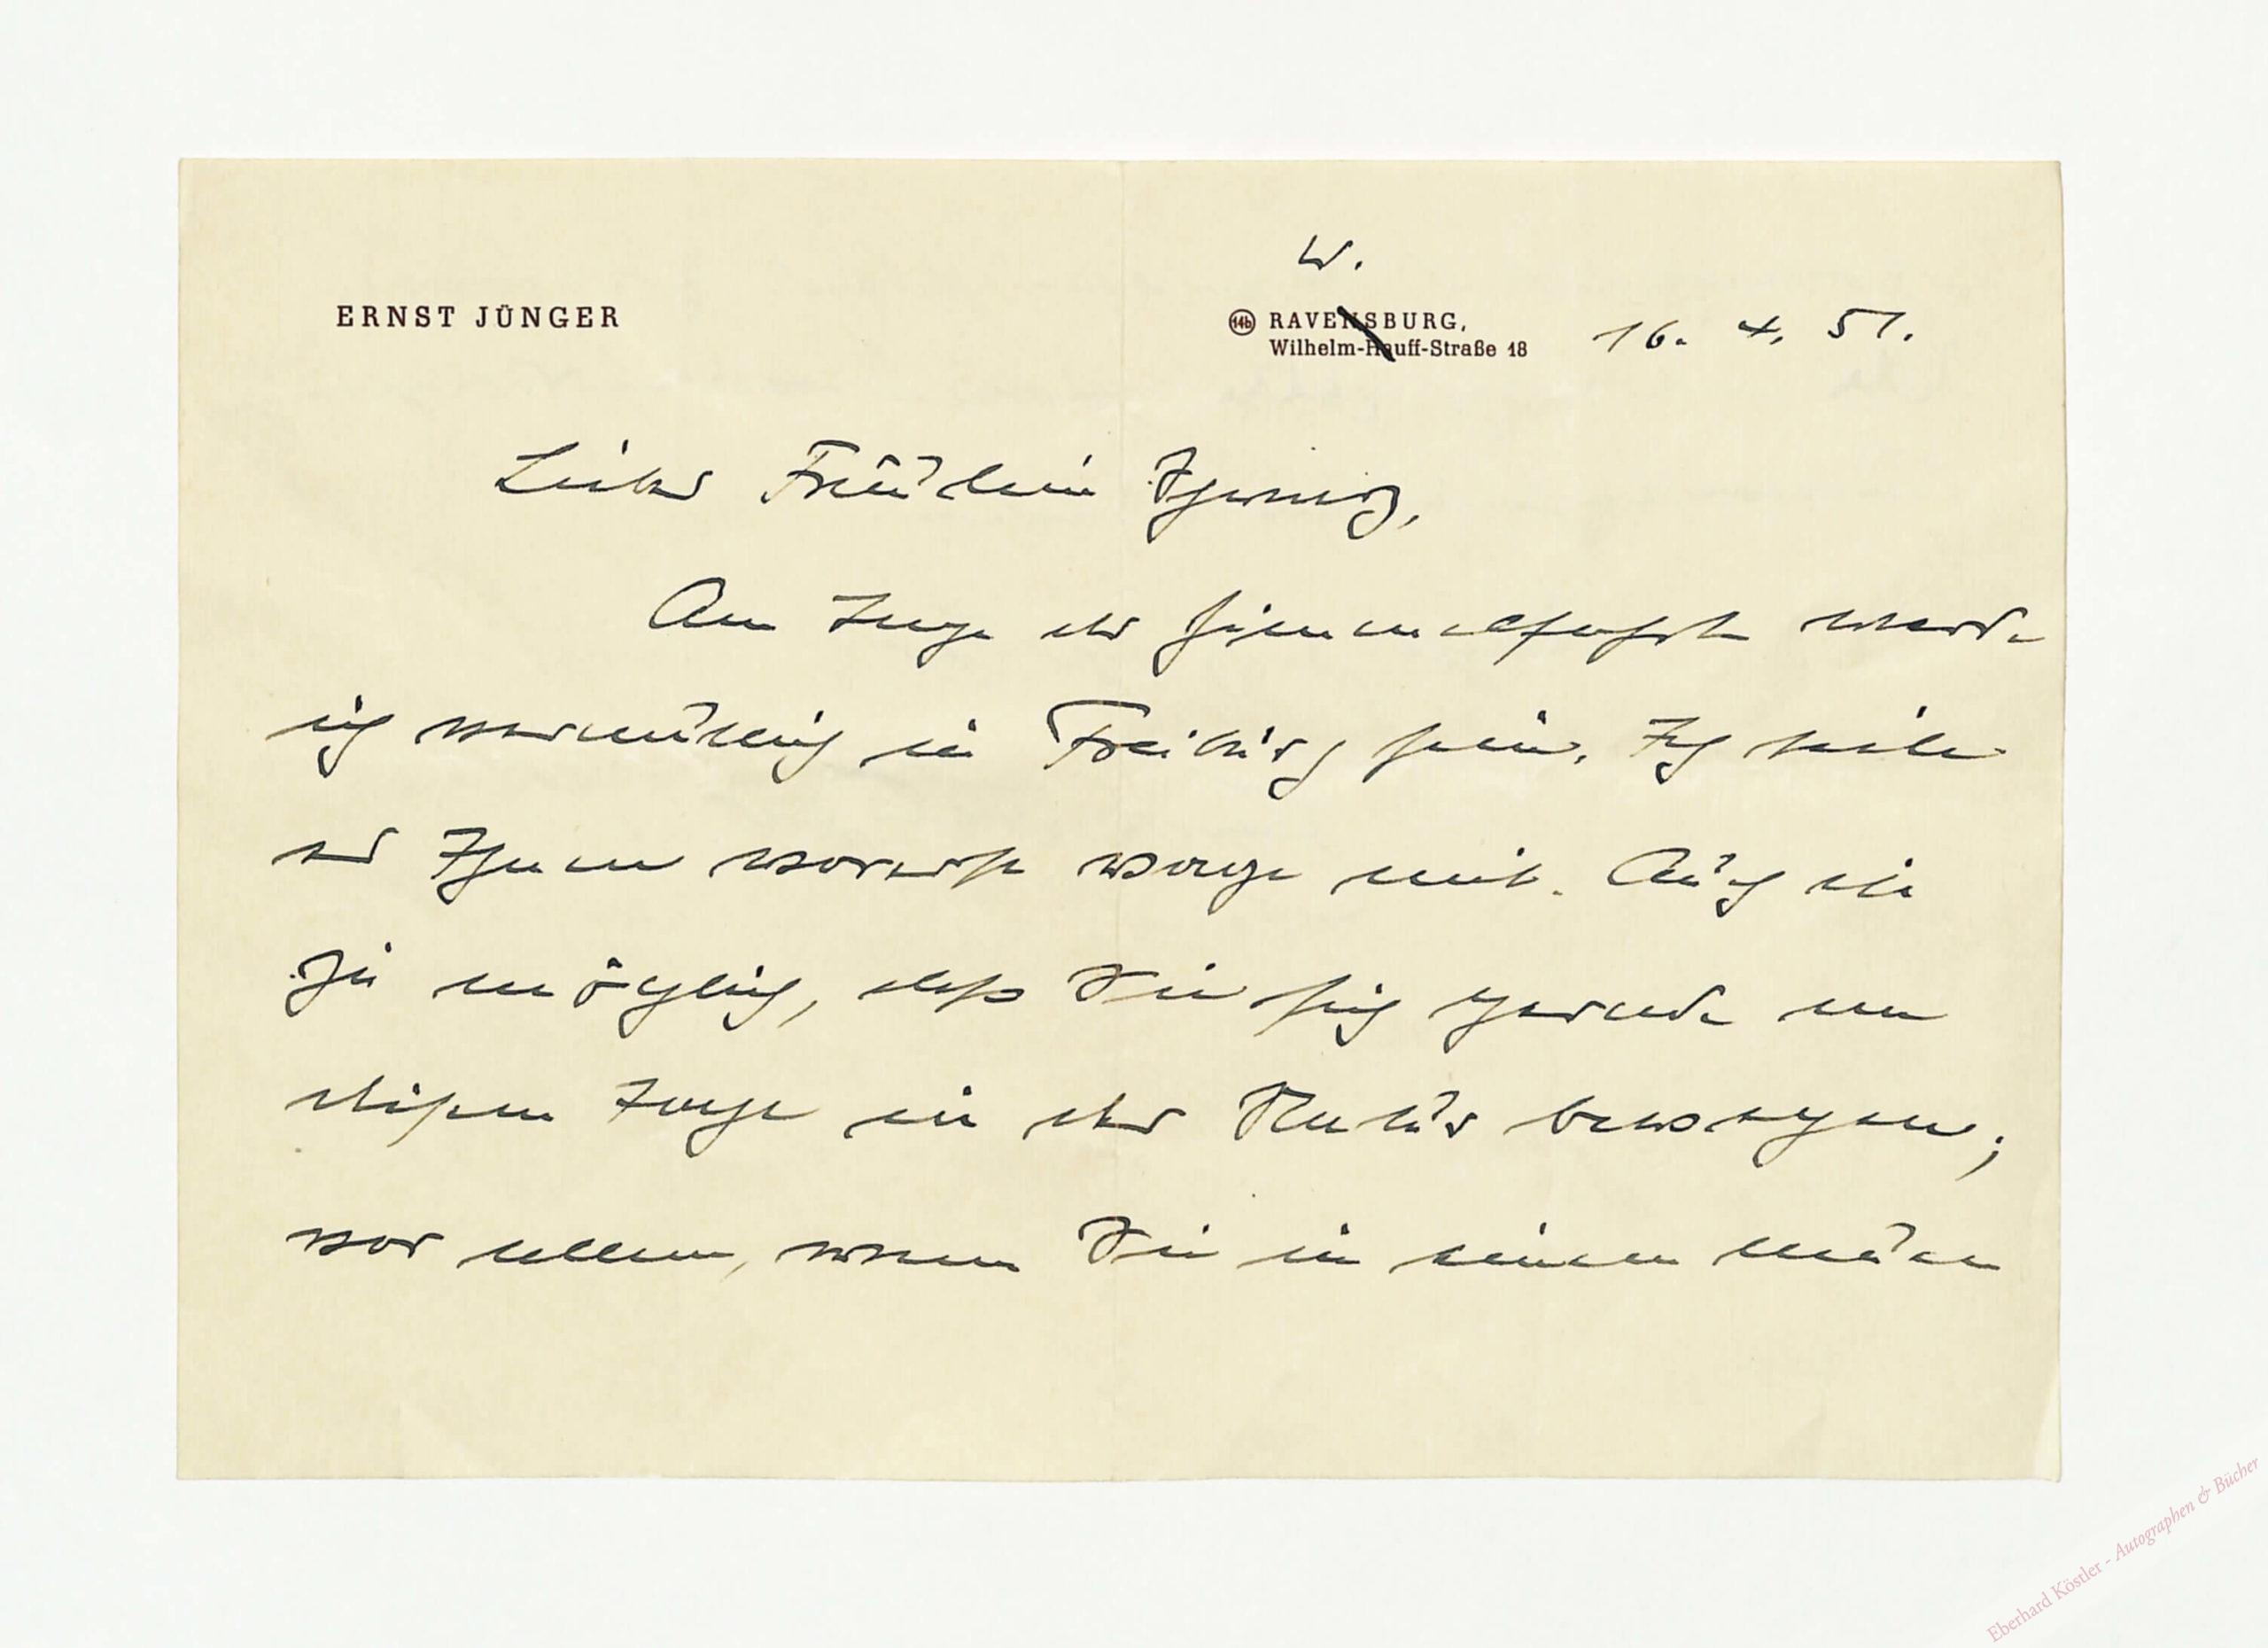 W.
ERNST JÜNGER
14b RAVENSBURG,
Wilhelm-Hauff-Straße 18 16. 4. 51.
Liebes Fräulein
Am Tage der Himmelfahrt werde
ich vermutlich in Freiburg sein. Ich teile
es Ihnen vorerst vage mit. Auch
ja möglich, daß Sie sich gerade an
diesem Tage in der Natur bewegen;
vor allem, wenn Sie in einem
Eberhard Köstler - Autographen & Bücher